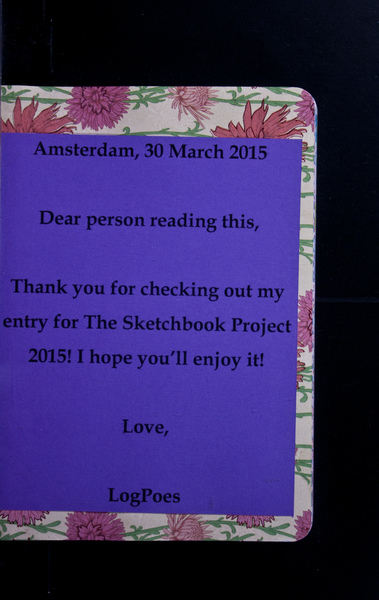 Amsterdam, 30 March 2015
Dear person reading this,
Thank you for checking out my
entry for The Sketchbook Project
2015! I hope you'll enjoy it!
Love,
LogPoes